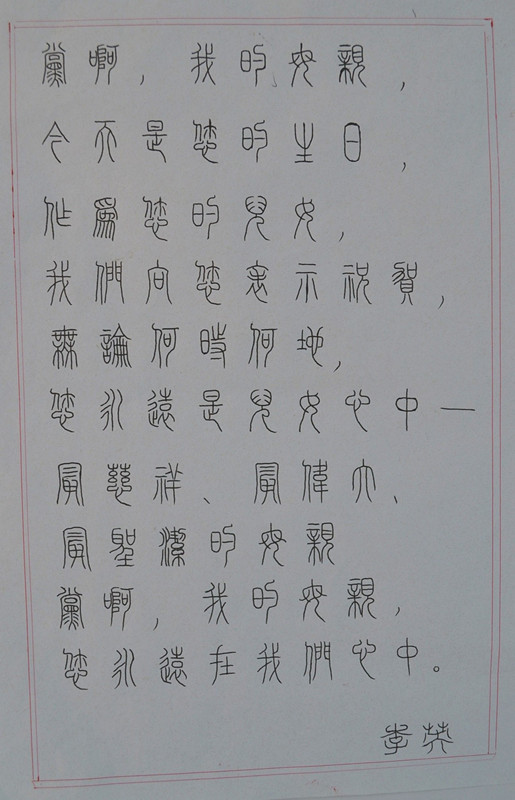 黨啊，我的母親，
今天是您的生日，
作爲您的兒女，
我們向您表示祝賀，
無論何時何地，
您永遠是兒女心中一
最慈祥、最偉大、
最聖潔的母親
黨啊，我的母親，
您永遠在我們心中。
李英